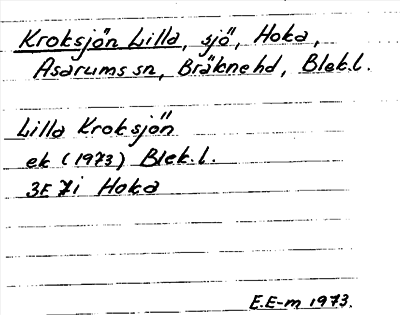 Kroksjön Lilla, sjö, Hoka,
Asarums sn, Bräkne hd, Blek.l.
Lilla Kroksjön
ek (1973) Blek.l.
3E 7i Hoka
E.E-m 1973.